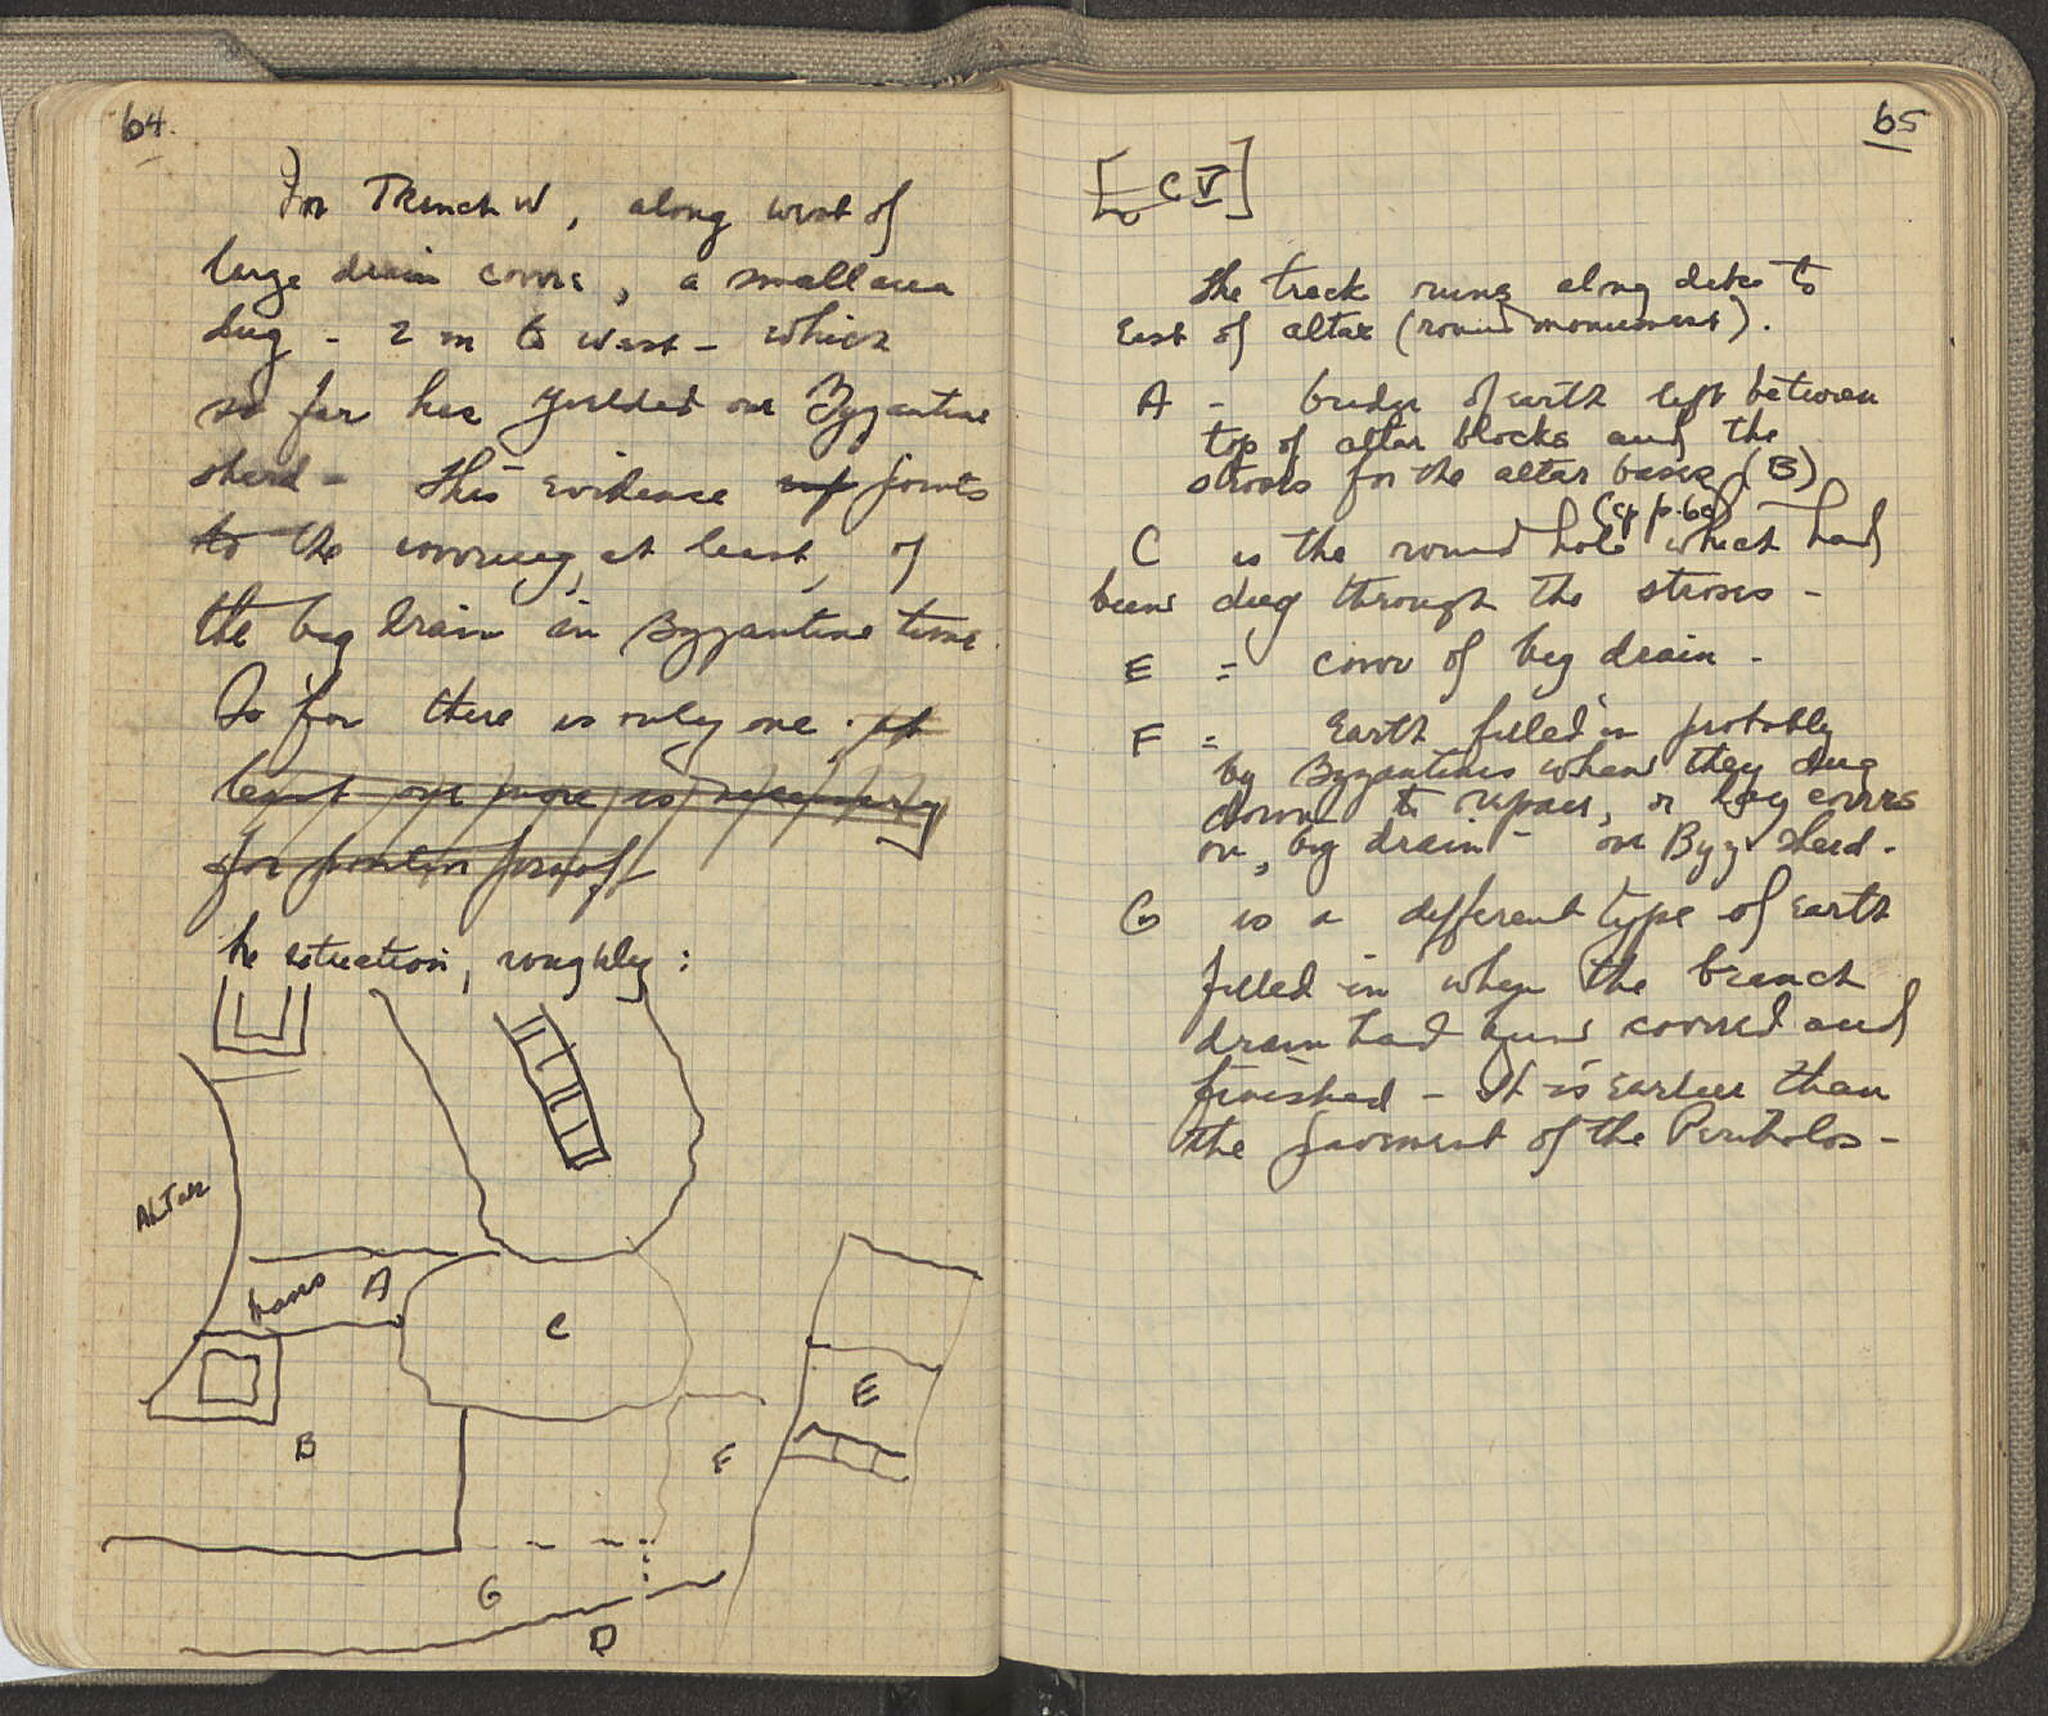 64.
For Trench W, along west of
large drain covers, a small area
dug - 2 m to west - which
so far has yielded one Byzantine
sherd - This evidence points
to the covering, at least, of
the big drain in Byzantine time.
So far there is only one. at
least one more is necessary
for positive proof
he situation, roughly:
Altar
bases A
C
B
E
F
G
D
65
[CV]
The track runs along dike to
East of altar (round monument).
A - bridge of earth left between
top of altar blocks and the
stroses for the altar bases (B)
(cf p. 60)
C is the round hole which had
been dug through the stroses -
E = cover of big drain -
F = Earth filled in probably
by Byzantines when they dug
down to repair, or lay covers
on, big drain - one Byz sherd.
G is a different type of earth
filled in when the branch
drain had been covered and
finished - It is earlier than
the pavement of the Peribolos -